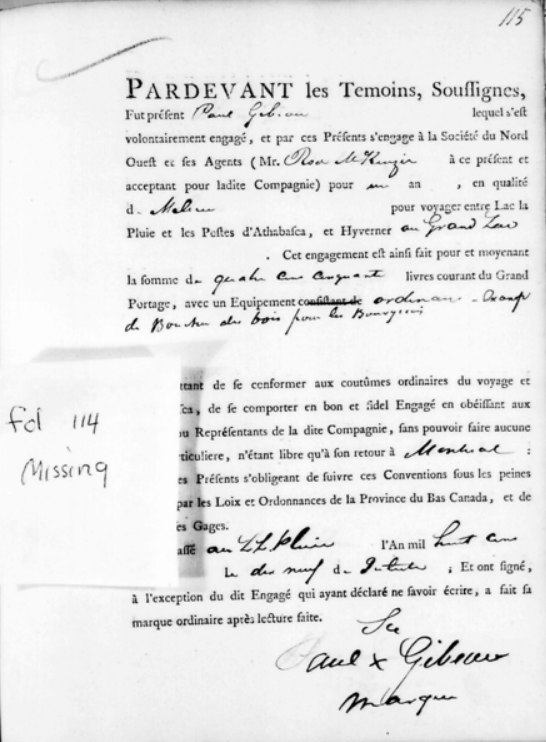 115
PARDEVANT les Temoins, Souſſignes,
Fut préſent Paul Gibeau lequel s'eſt
volontairement engagé, et par ces Préſents s'engage à la Société du Nord
Oueſt et ſes Agents (Mr. Rod McKenzie à ce préſent et
acceptant pour ladite Compagnie) pour un an , en qualité
de Milieu pour voyager entre Lac la
Pluie et les Poſtes d'Athabaſca, et Hyverner au Grand Lac
. Cet engagement eſt ainſi fait pour et moyenant
la ſomme de quatre cens cinquante livres courant du Grand
Portage, avec un Equipement conſiſtant de ordinaire - Exempt
de Boucher des bois pour les Bourgeois
rtant de ſe conformer aux coutûmes ordinaires du voyage et
ſca, de ſe comporter en bon et fidel Engagé en obéiſſant aux
ou Repréſentants de la dite Compagnie, ſans pouvoir faire aucune
rticuliere, n'étant libre qu'à ſon retour à Montreal :
es Préſents s'obligeant de ſuivre ces Conventions ſous les peines
par les Loix et Ordonnances de la Province du Bas Canada, et de
es Gages.
aſſé au LL Pluie l'An mil huit cens
Le dix neuf de Juillet ; Et ont ſigné,
à l'exception du dit Engagé qui ayant déclaré ne ſavoir écrire, a fait ſa
marque ordinaire après lecture faite.
Sa
Paul x Gibeau
marque
fol 114
Missing